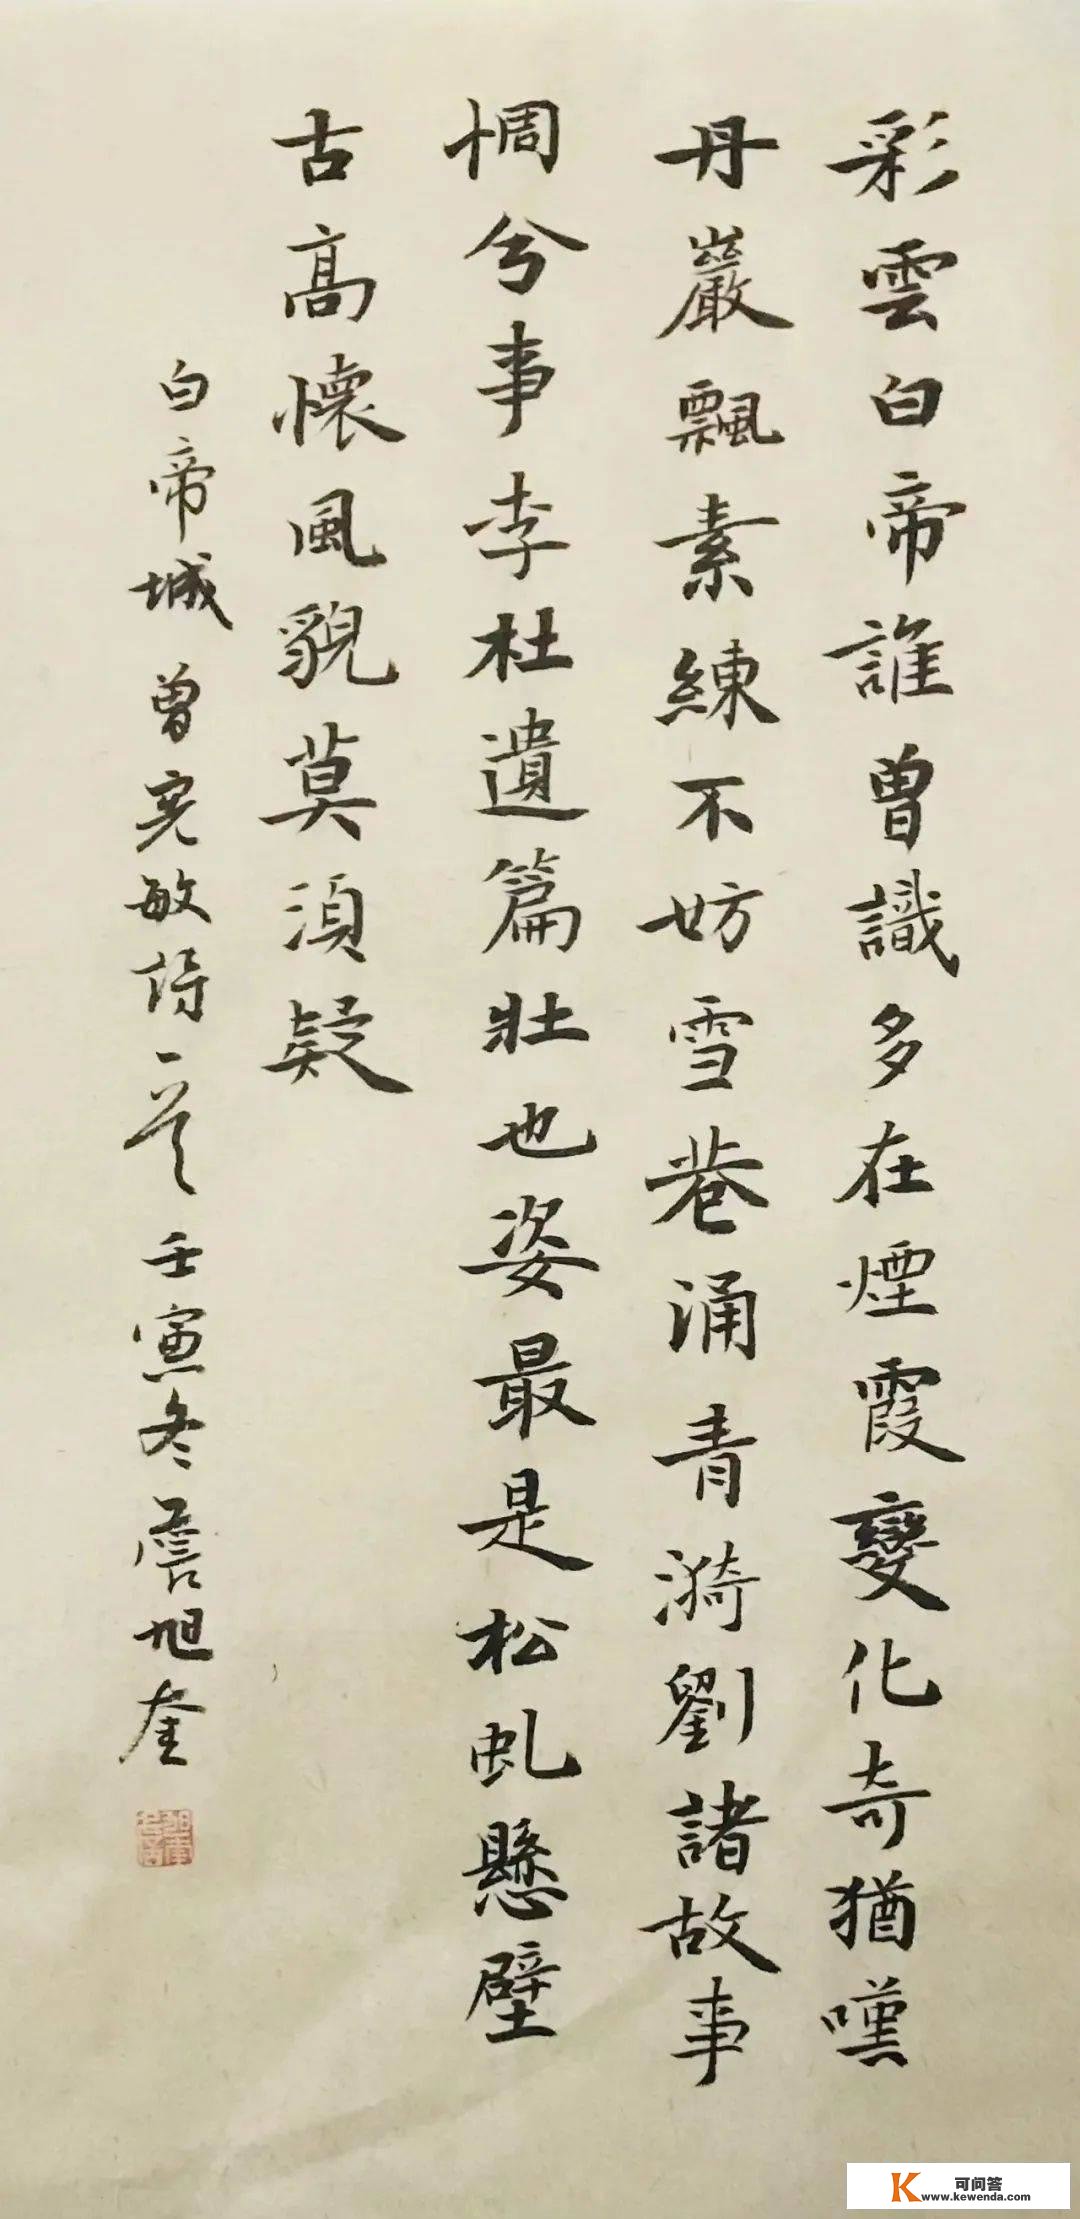 彩雲白帝誰曾識多在煙霞變化奇猶嘆
丹巖飄素練不妨雪巷涌青漪劉諸故事
惆兮事李杜遺篇壯也姿最是松虬懸壁
古高懷風貌莫須疑
白帝城 曾憲敏詩一首 壬寅冬詹旭奎
可问答
www.kewenda.com